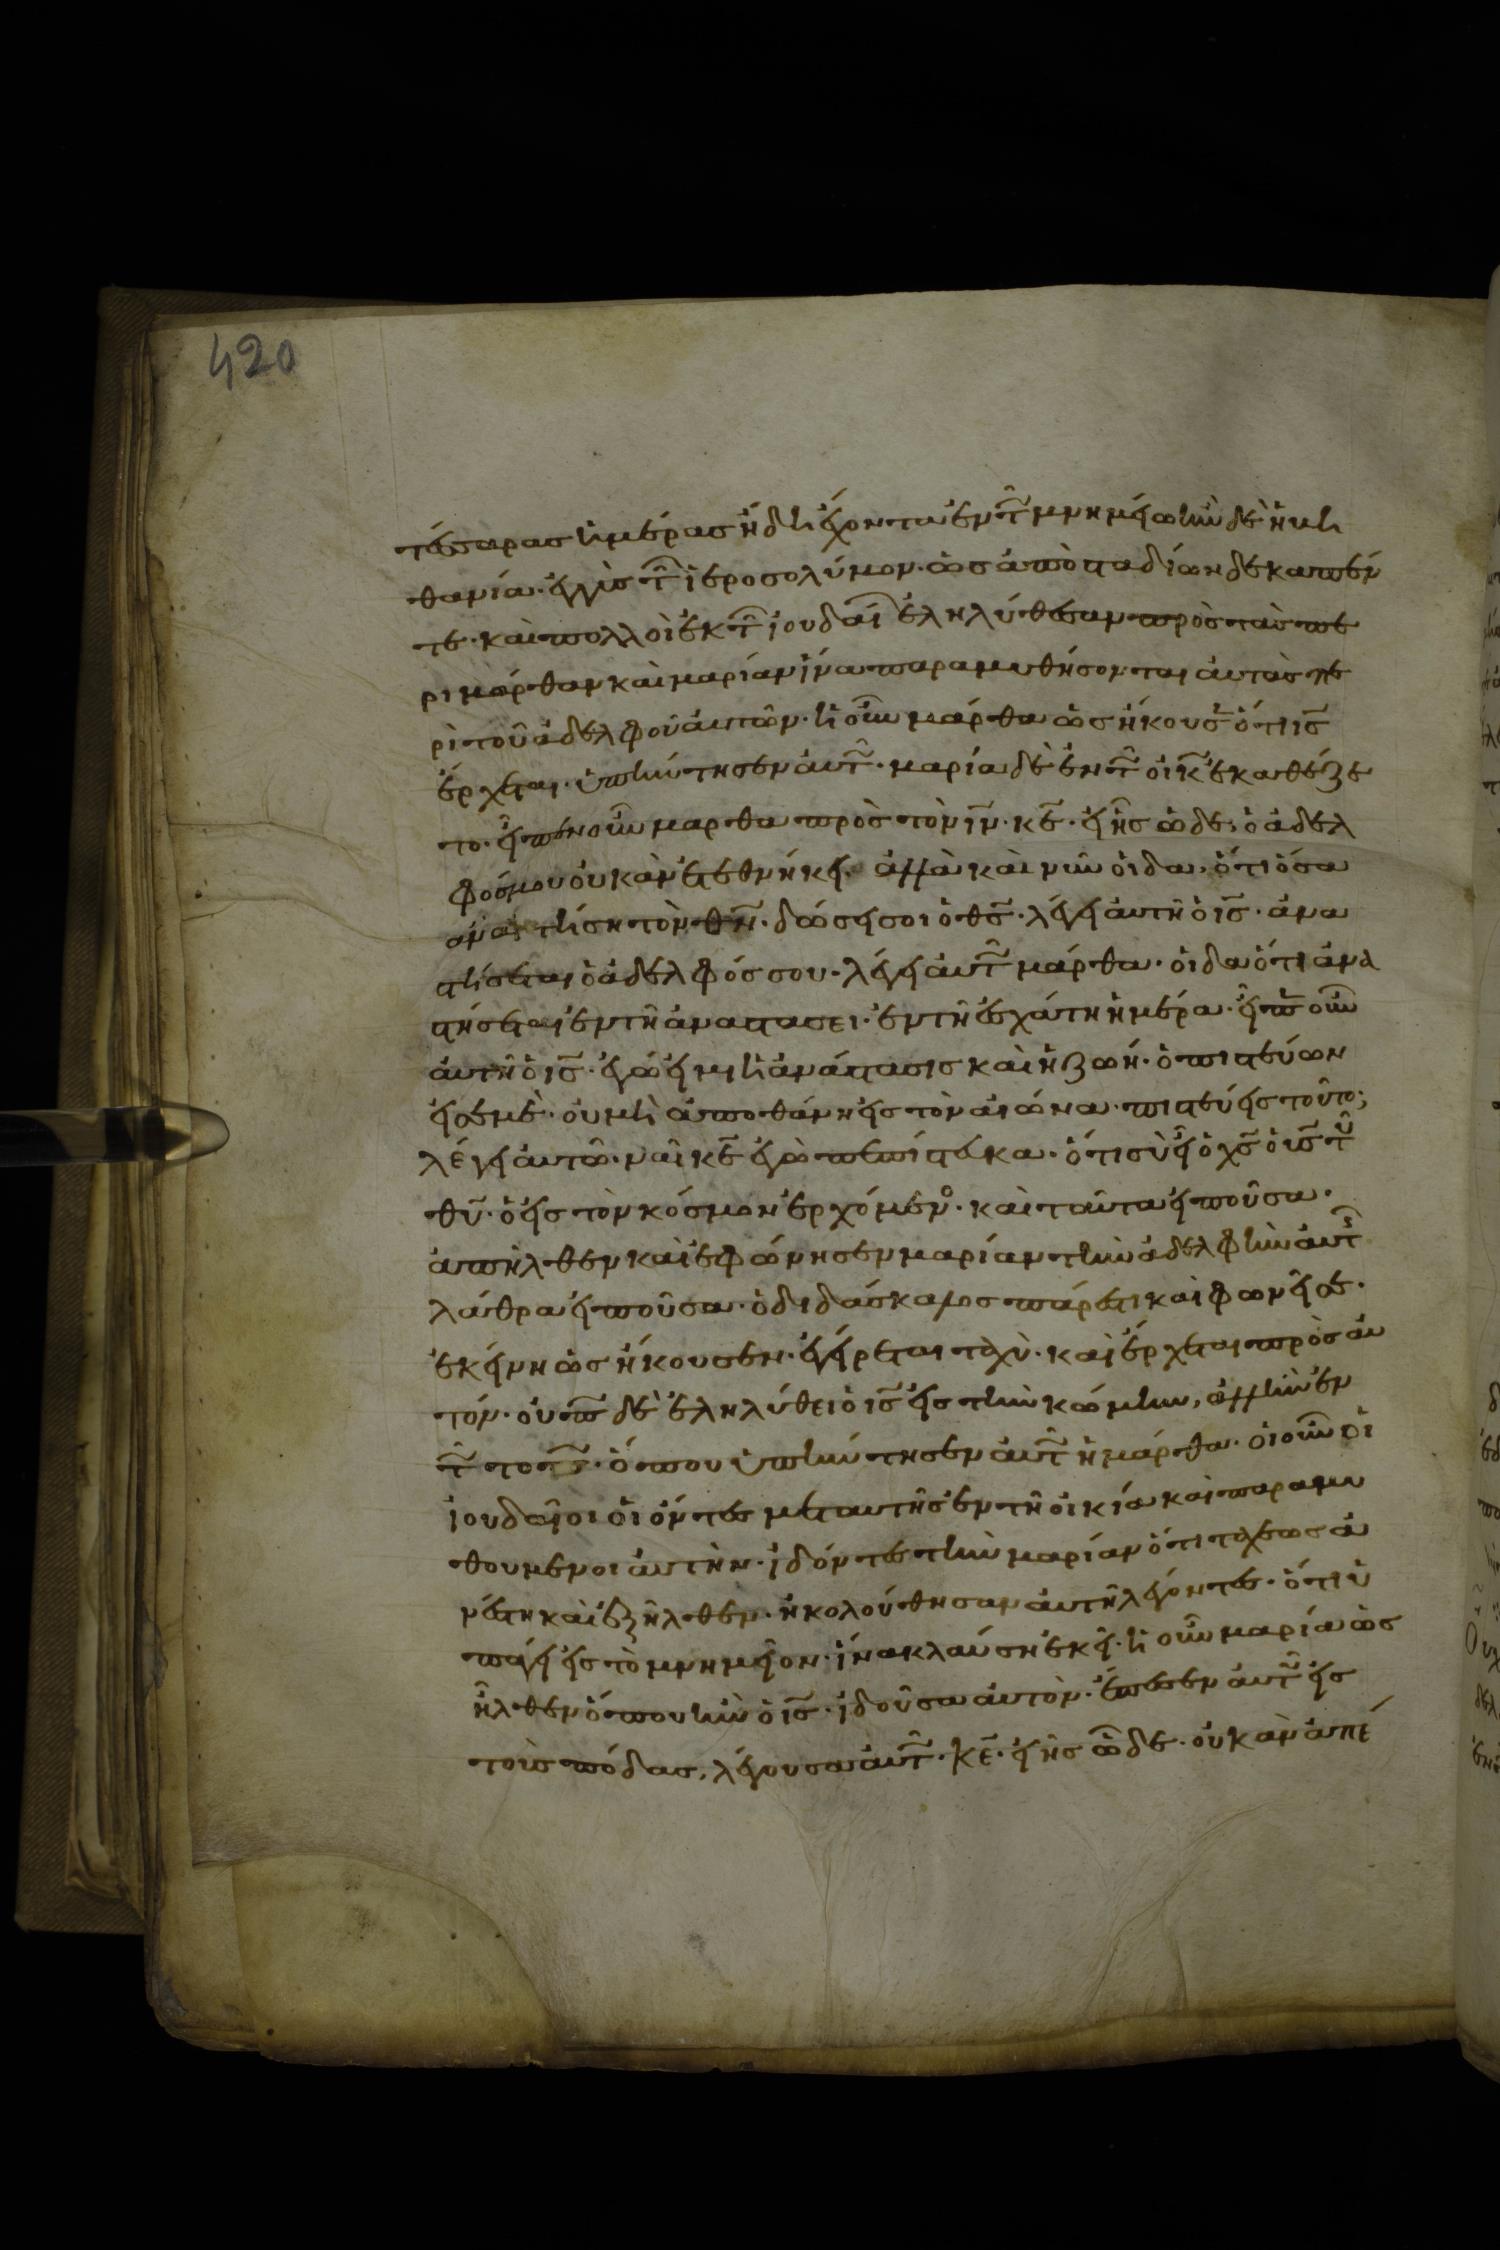 420
τέσσαρας ἡμέρας ἤδη ἔχοντα ἐν τῶ μνημείω ἦν δὲ ἡ βη
θανία· ἐγγὺς τῶν ἱεροσολύμων· ὡς ἀπὸ σταδίων δεκαπέν
τε· καὶ πολλοὶ ἐκ τῶν ἰουδαίων ἐληλύθεσαν πρὸς τὰς πε
ρὶ μάρθαν καὶ μαρίαν ἵνα παραμυθήσονται αὐτὰς πε
ρὶ τοῦ ἀδελφοῦ αὐτῶν· ἡ οὖν μάρθα ὡς ἤκουσεν ὅτι ις
ἔρχεται· ὑπήντησεν αὐτῶ· μαρία δὲ ἐν τῶ οἴκω ἐκαθέζε
το· εἶπεν οὖν μάρθα πρὸς τὸν ιν· κε· εἰ ἦς ὧδε· ὁ ἀδελ
φός μου οὐκ ἂν ἐτεθνήκει· ἀλλὰ καὶ νῦν οἶδα· ὅτι ὅσα
ἂν αἰτήση τὸν θν· δώσει σοι ὁ θς· λέγει αὐτῆ ὁ ις· ἀνα
στήσεται ὁ ἀδελφός σου· λέγει αὐτῶ μάρθα· οἶδα ὅτι ἀνα
στήσεται ἐν τῆ ἀναστάσει· ἐν τῆ ἐσχάτη ἡμέρα· εἶπεν οὖν
αὐτῆ ὁ ις· ἐγώ εἰμι ἡ ἀνάστασις καὶ ἡ ζωή· ὁ πιστεύων
εἰς ἐμὲ· οὐ μὴ ἀποθάνη εἰς τὸν αἰῶνα· πιστεύεις τοῦτο;
λέγει αὐτῶ· ναὶ κε ἐγὼ πεπίστευκα· ὅτι σὺ εἶ ὁ χς ὁ υς τοῦ
θυ· ὁ εἰς τὸν κόσμον ἐρχόμενος· καὶ ταῦτα εἰποῦσα·
ἀπῆλθεν καὶ ἐφώνησεν μαρίαν τὴν ἀδελφὴν αὐτῆς
λάθρα εἰποῦσα· ὁ διδάσκαλος πάρεστι καὶ φωνεῖ σε·
ἐκείνη ὡς ἤκουσεν· ἐγείρεται ταχὺ· καὶ ἔρχεται πρὸς αὐ
τόν· οὔπω δὲ ἐληλύθει ὁ ις εἰς τὴν κώμην, ἀλλ ἦν ἐν
τῶ τόπω· ὅπου ὑπήντησεν αὐτῶ ἡ μάρθα· οἱ οὖν οἱ
ἰουδαῖοι οἱ ὄντες μετ αὐτῆς ἐν τῆ οἰκία καὶ παραμυ
θούμενοι αὐτὴν· ἰδόντες τὴν μαρίαν ὅτι ταχέως ἀ
νέστη καὶ ἐξῆλθεν· ἠκολούθησαν αὐτῆ λέγοντες· ὅτι ὑ
πάγει εἰς τὸ μνημεῖον· ἵνα κλαύση ἐκεῖ· ἡ οὖν μαρία ὡς
ἦλθεν ὅπου ἦν ὁ ις· ἰδοῦσα αὐτὸν· ἔπεσεν αὐτοῦ εἰς
τοὺς πόδας, λέγουσα αὐτῶ· κε· εἰ ἦς ὧδε· οὐκ ἂν ἀπέ